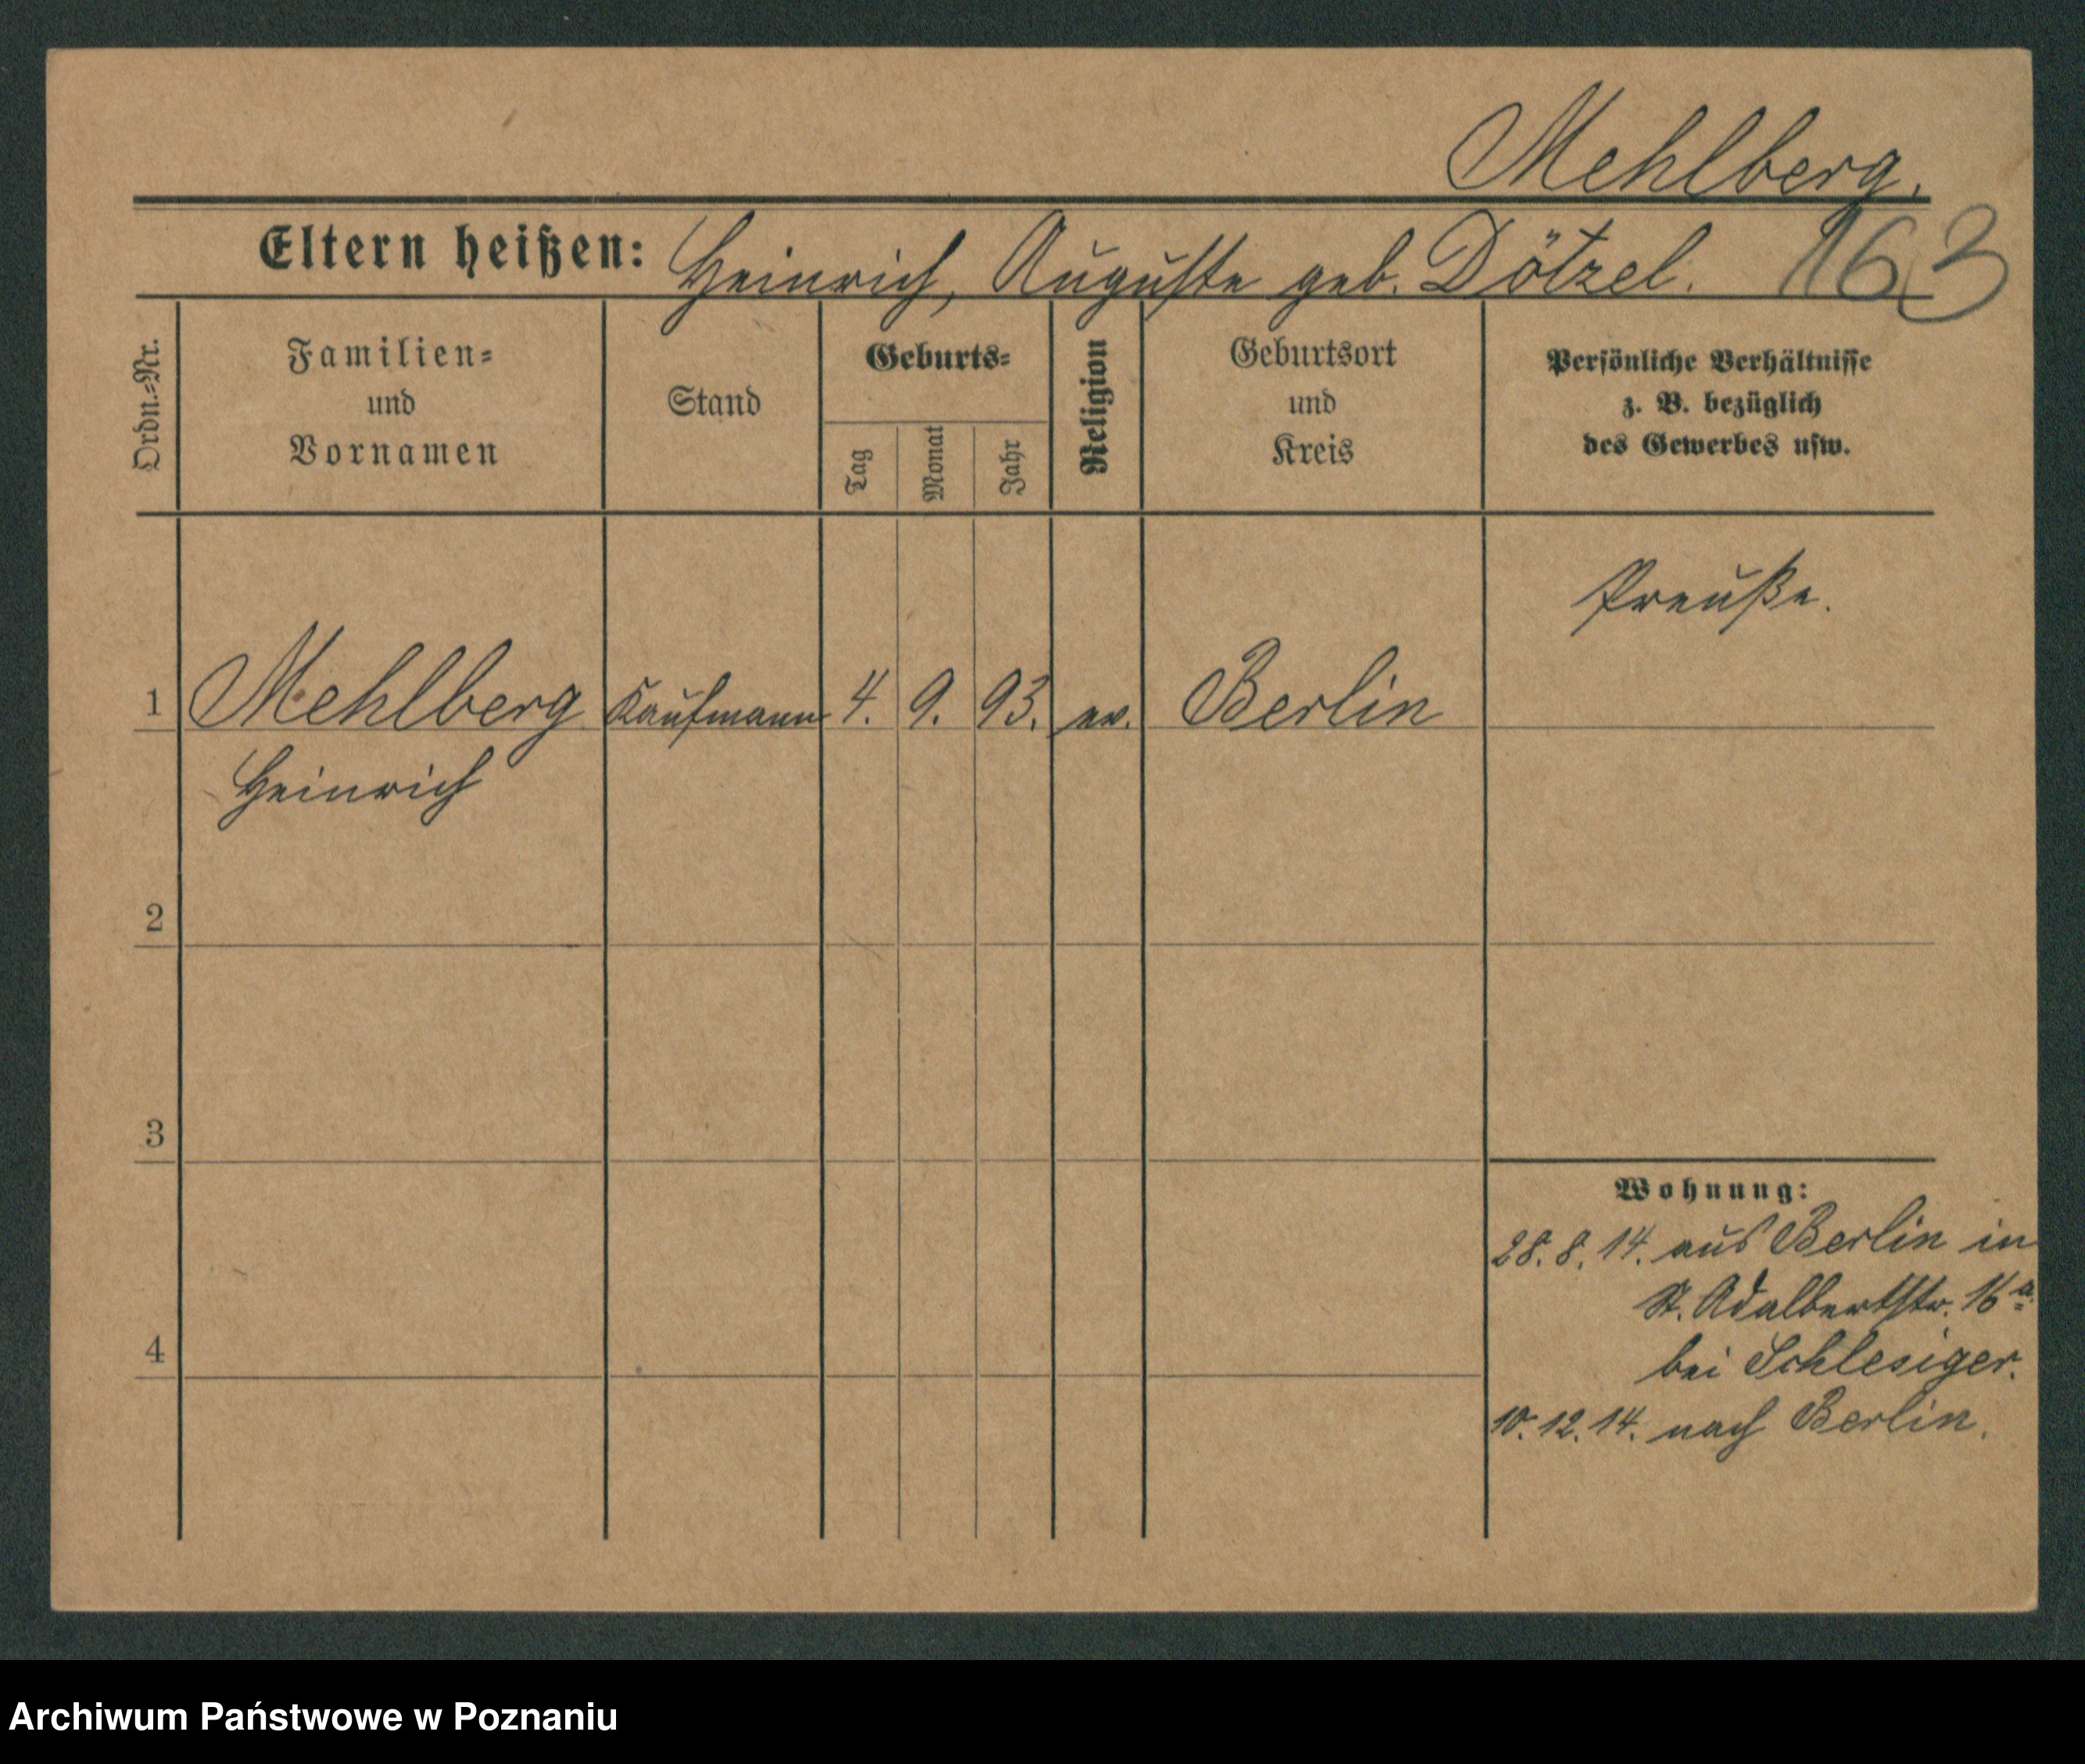 Mehlberg.
Eltern heißen: Heinrich, Auguste geb. Dötzel. 163
Ordn.=Nr.
Familien=
und
Vornamen
Stand
Geburts=
Tag
Monat
Jahr
Religion
Geburtsort
und
Kreis
Persönliche Verhältnisse
z. B. bezüglich
des Gewerbes usw.
Preuße.
1 Mehlberg Kaufmann 4. 9. 93. ev. Berlin
Heinrich
2
3
Wohnung:
28. 8. 14. aus Berlin in
St. Adalbertstr. 16a
4
bei Schlesiger.
10. 12. 14. nach Berlin.
Archiwum Państwowe w Poznaniu